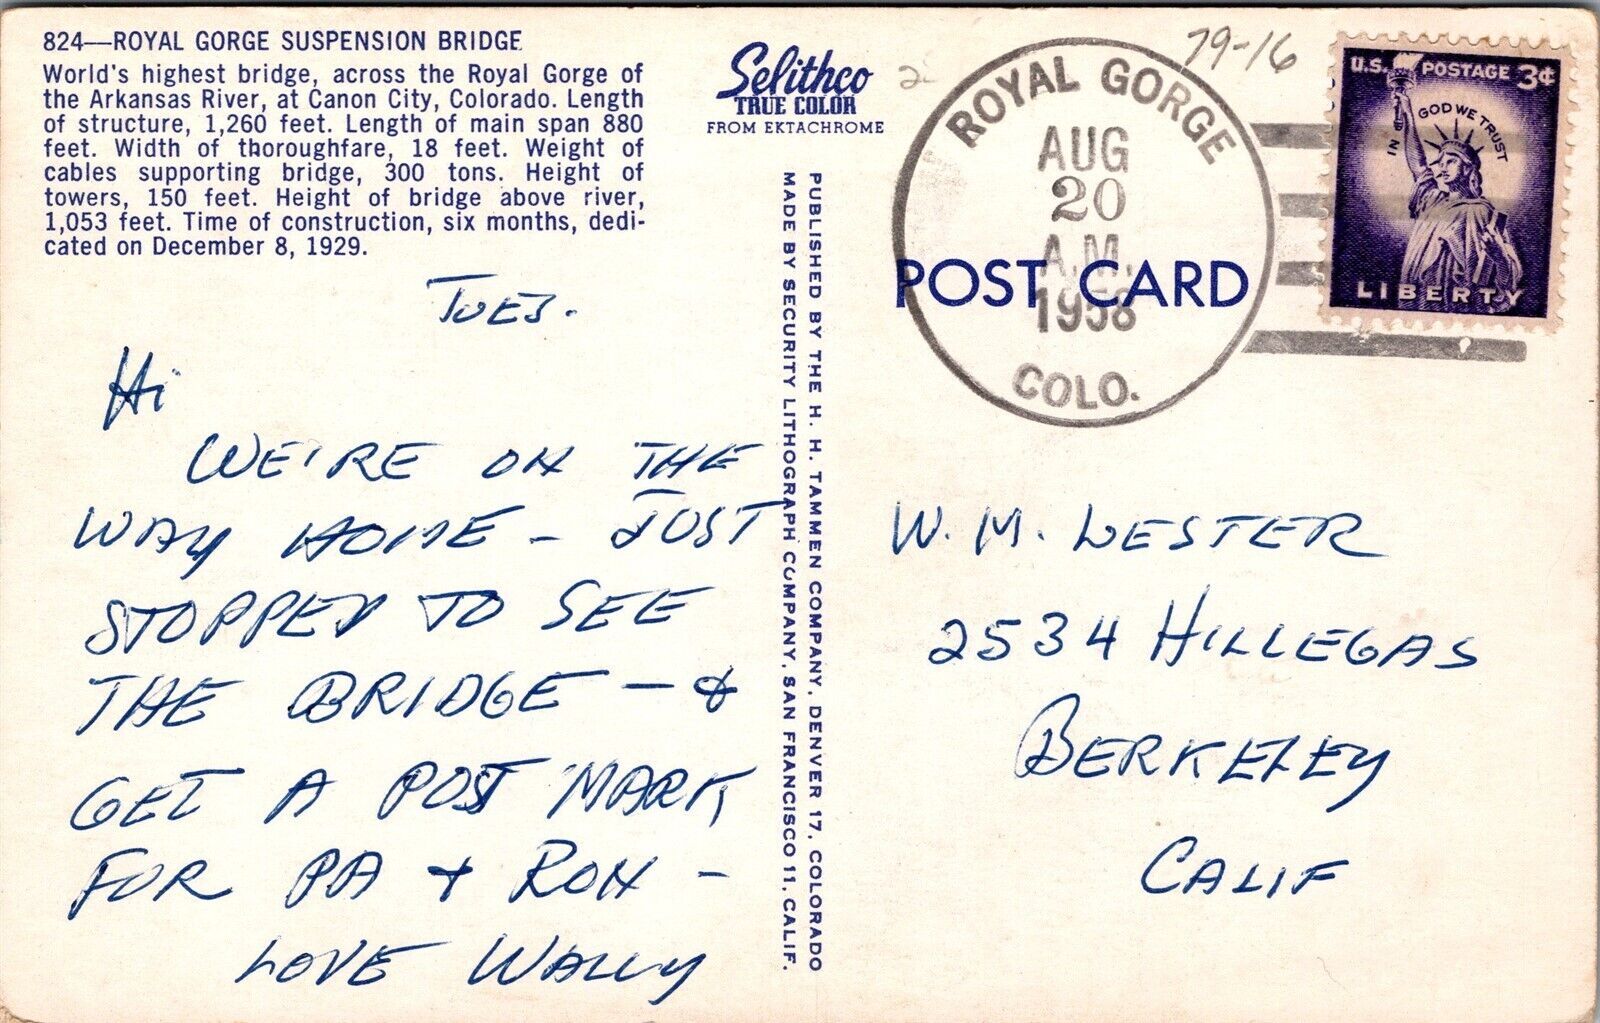 824—ROYAL GORGE SUSPENSION BRIDGE
World's highest bridge, across the Royal Gorge of
the Arkansas River, at Canon City, Colorado. Length
of structure, 1,260 feet. Length of main span 880
feet. Width of thoroughfare, 18 feet. Weight of
cables supporting bridge, 300 tons. Height of
towers, 150 feet. Height of bridge above river,
1,053 feet. Time of construction, six months, dedi-
cated on December 8, 1929.
TUES.
Hi
WE'RE ON THE
WAY HOME - JUST
STOPPED TO SEE
THE BRIDGE - &
GET A POST MARK
FOR PA & RON -
LOVE WALLY
Selithco
TRUE COLOR
FROM EKTACHROME
PUBLISHED BY THE H. H. TAMMEN COMPANY, DENVER 17, COLORADO
MADE BY SECURITY LITHOGRAPH COMPANY, SAN FRANCISCO 11, CALIF.
79-16
ROYAL GORGE
AUG
20
A.M.
1958
COLO.
POST CARD
U.S. POSTAGE 3¢
IN GOD WE TRUST
LIBERTY
W. M. LESTER
2534 HILLEGAS
BERKELEY
CALIF